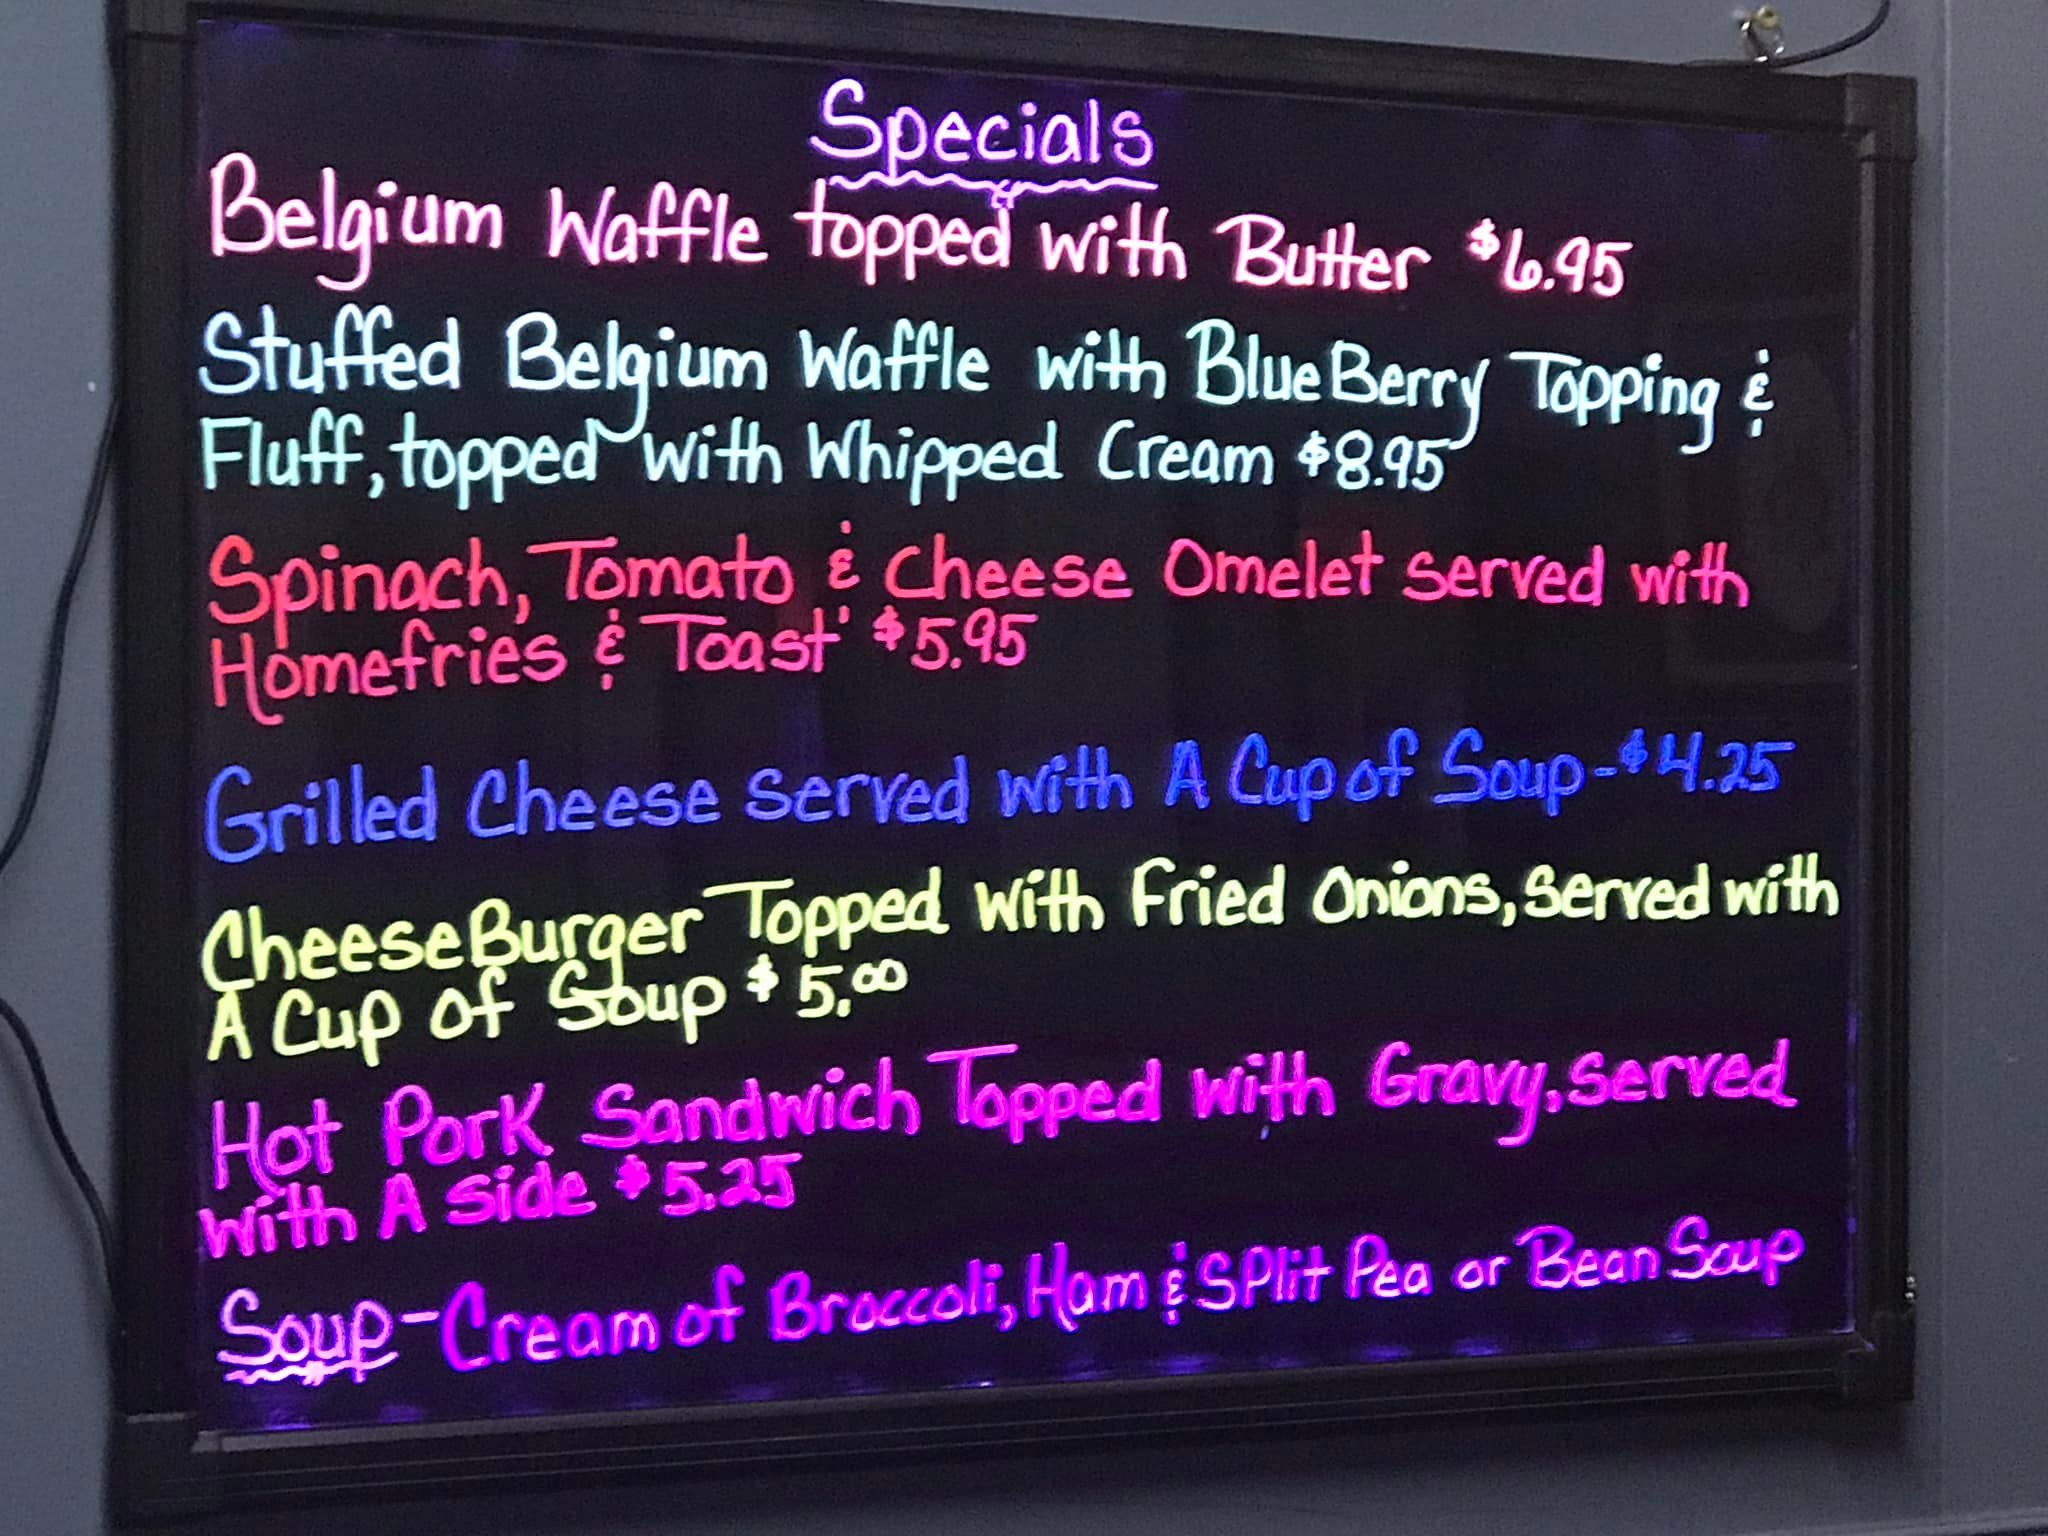 Specials
Belgium Waffle topped with Butter $6.95
Stuffed Belgium Waffle with BlueBerry Topping &
Fluff, topped with Whipped Cream $8.95
Spinach, Tomato & Cheese Omelet served with
Homefries & Toast $5.95
Grilled Cheese served with A Cup of Soup-$4.25
CheeseBurger Topped with Fried Onions, served with
A Cup of Soup $5.00
Hot Pork Sandwich Topped with Gravy, served
with A side $5.25
Soup-Cream of Broccoli, Ham & Split Pea or Bean Soup